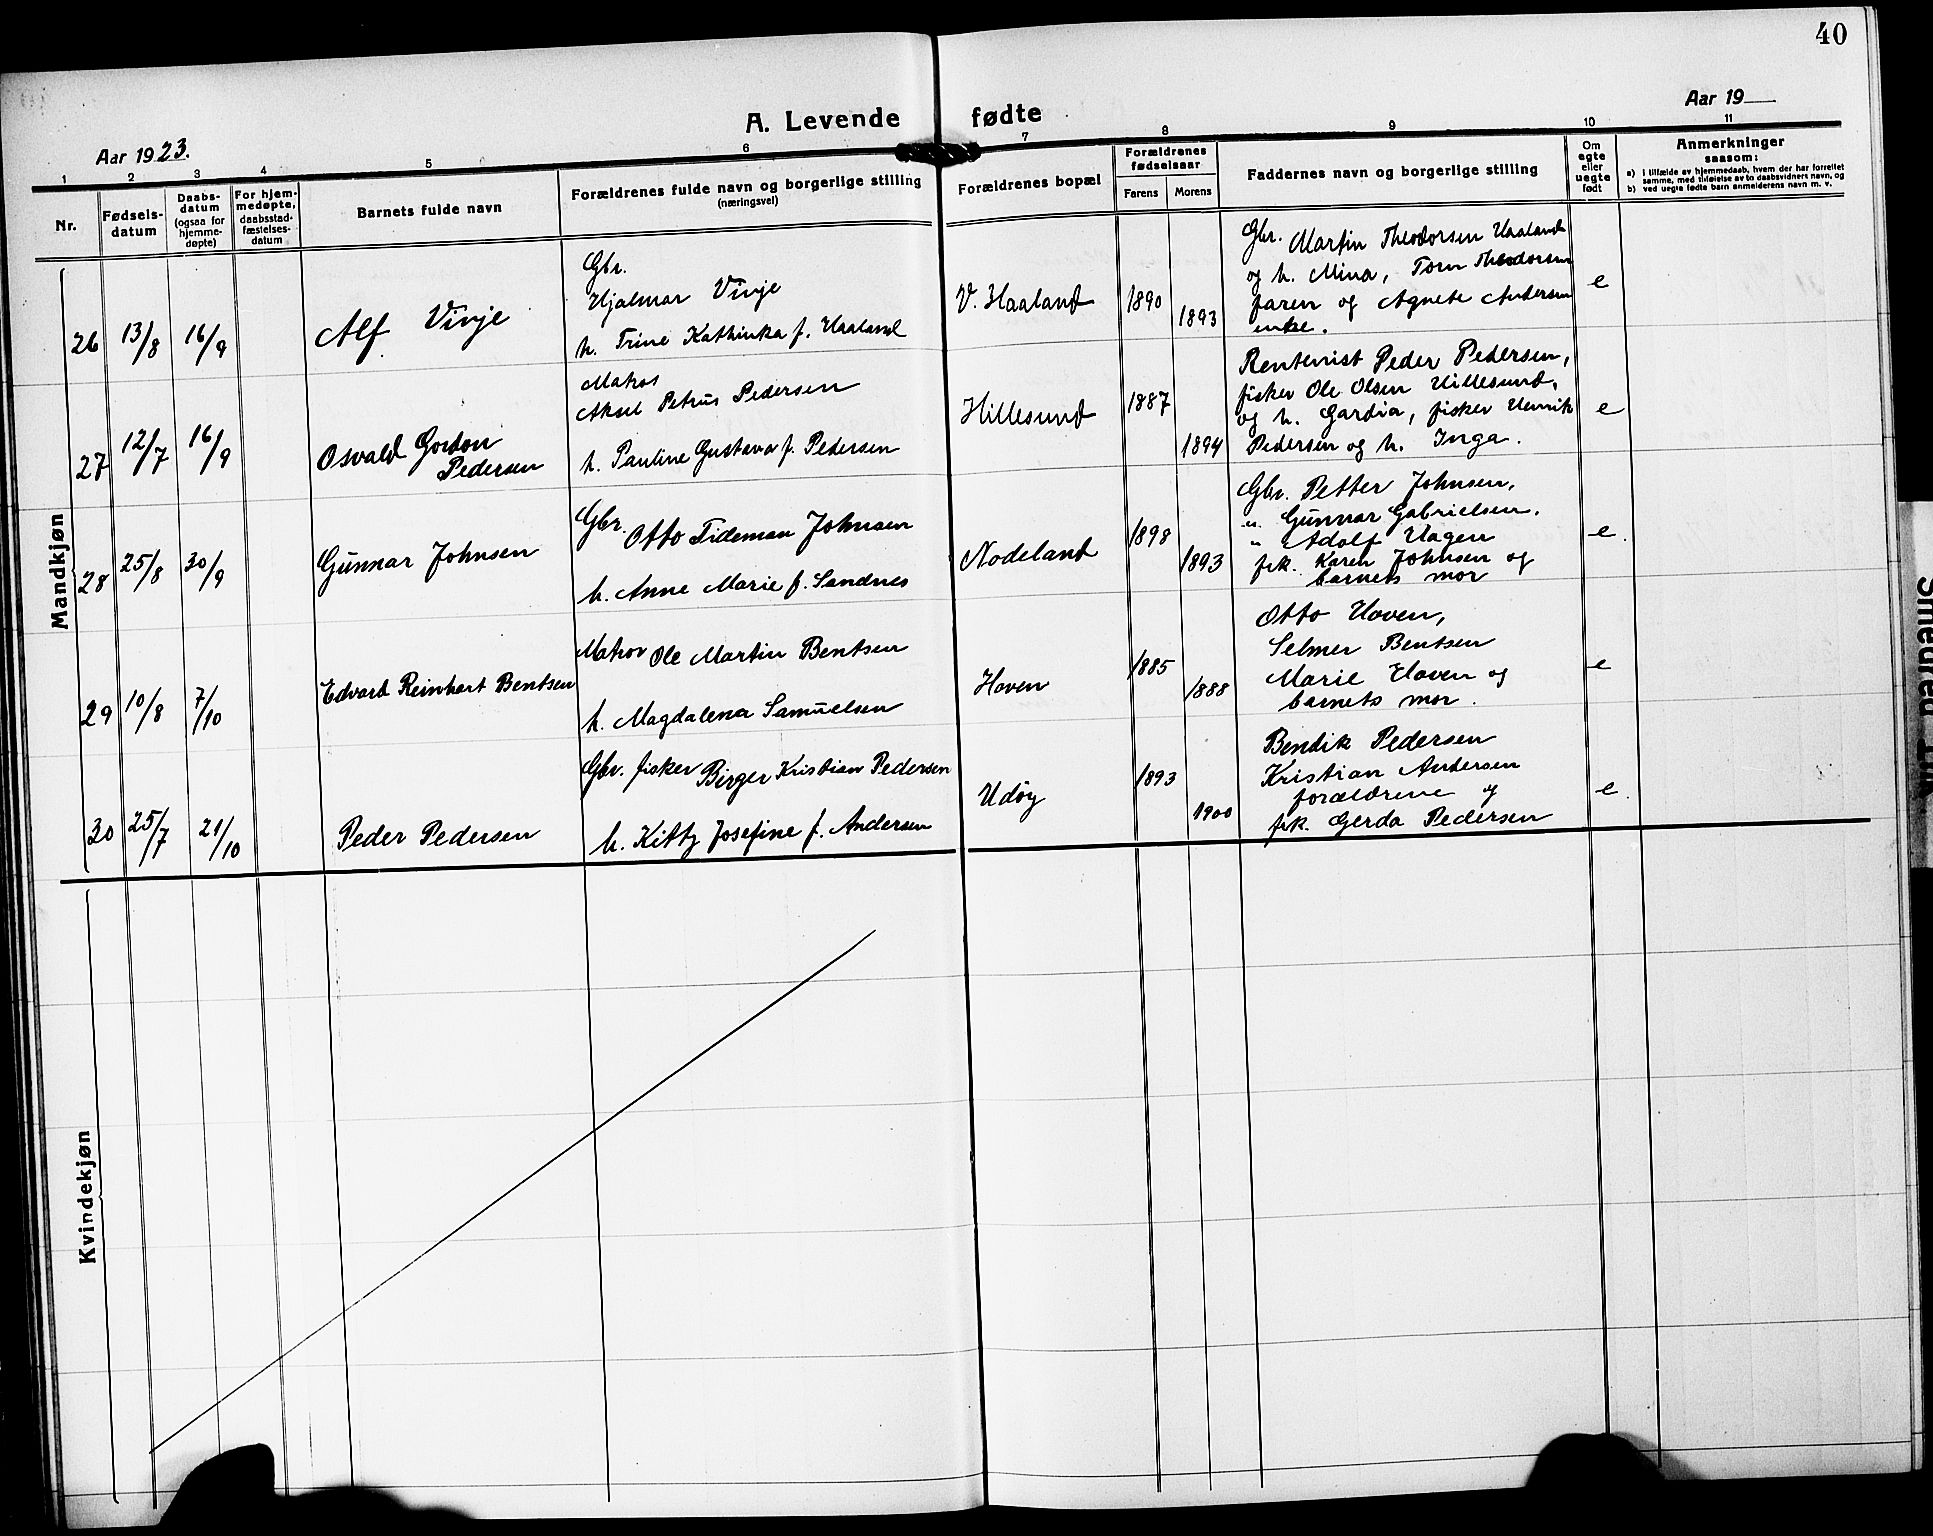 40
A. Levende fødte
Aar 1923.
Aar 19
1 2 3 4 5 6 7 8 9 10 11
Nr.
Fødsels-
datum
Daabs-
datum
(ogsaa for
hjemme-
døpte)
For hjem-
medøpte,
daabsstad-
fæstelses-
datum
Barnets fulde navn
Forældrenes fulde navn og borgerlige stilling
(næringsvei)
Forældrenes bopæl
Forældrenes
fødselsaar
Farens Morens
Faddernes navn og borgerlige stilling
Om
egte
eller
uegte
født
Anmerkninger
saasom:
a) i tilfælde av hjemmedaab, hvem der har forrettet
samme, med tilføielse av to daabsvidners navn, og
b) ved uegte fødte barn anmelderens navn m. v.
Mandkjøn
26 13/8 16/9
Alf Vinje
Gbr.
Hjalmar Vinje
h. Trine Kathinka f. Haaland
V. Haaland
1890
1893
Gbr. Martin Theodorsen Haaland
og h. Mina, Tom Theodorsen
faren og Agnete Andersen
enke.
e
27 12/7 16/9
Osvald Gordon
Pedersen
Matros
Aksel Petrus Pedersen
h. Pauline Gustava f. Pedersen
Hillesund
1887
1894
Rentenist Peder Pedersen,
fisker Ole Olsen Hillesund,
og h. Gardia, fisker Henrik
Pedersen og h. Inga.
e
28 25/8 30/9
Gunnar Johnsen
Gbr. Otto Tideman Johnsen
h. Anne Marie f. Sandnes
Nodeland
1898
1893
Gbr. Petter Johnsen,
" Gunnar Gabrielsen.
" Adolf Hagen
frk. Karen Johnsen og
barnets mor
e.
29 10/8 7/10
Edvard Reinhart Bentsen
Matros Ole Martin Bentsen
h. Magdalena Samuelsen
Hoven
1885
1888
Otto Hoven,
Selmer Bentsen
Marie Hoven og
barnets mor.
e
30 25/7 21/10
Peder Pedersen
Gbr. fisker Birger Kristian Pedersen
h. Kitty Josefine f. Andersen
Udøy
1893
1900
Bendik Pedersen
Kristian Andersen
forældrene og
frk. Gerda Pedersen
e.
Kvindekjøn